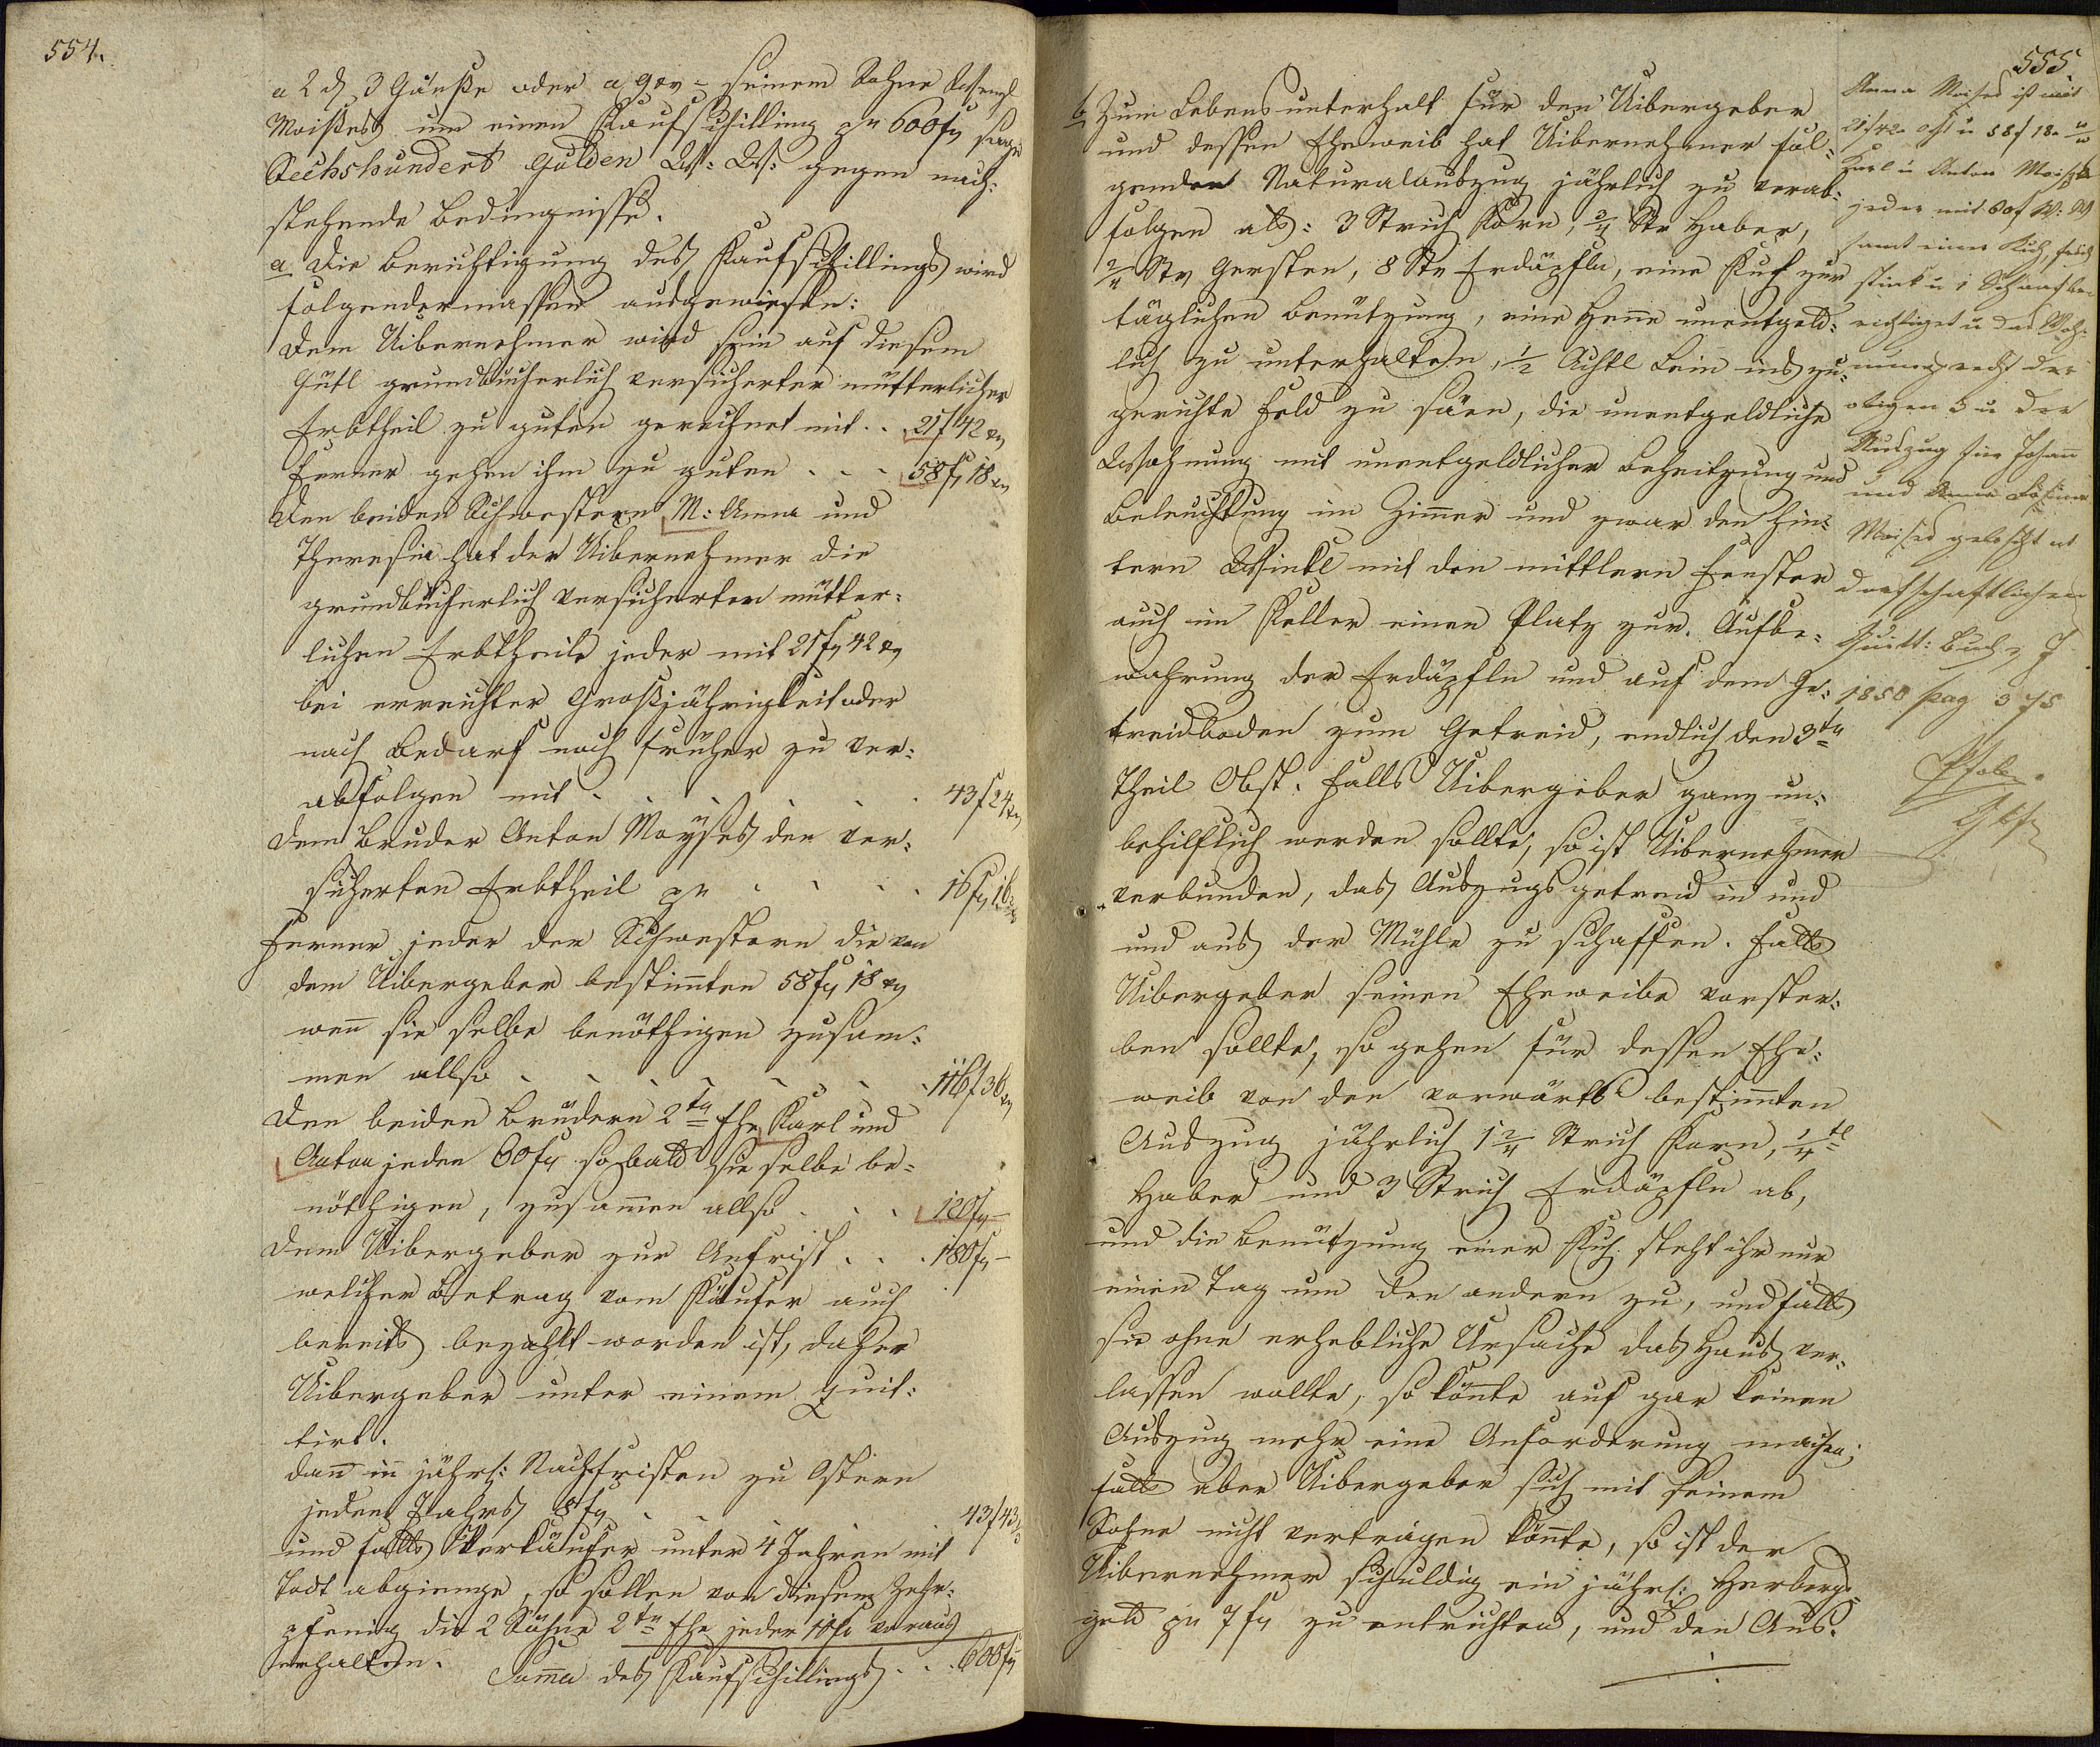 554.
a 2 d, 3 Gänße oder a 9 xr = seinem Sohne Wenzl
Moißes um einen Kaufschilling pr 600 f sage
Sechshundert Gulden W: W: gegen nach:
stehende Bedingnisse.
a Die Berichtigung des Kaufschillings wird
folgendermassen ausgewiesen:
Dem Uibernehmer wird sein auf diesem
Gütl grundbücherlich versicherter mütterlicher
Erbtheil zu guten gerechnet mit . . 21 f 42 xr
Ferner gehen ihm zu guten . . . 58 f 18 xr
Den beiden Schwestern M: Anna und
Theresia hat der Uibernehmer die
grundbücherlich versicherten mütter:
lichen Erbtheile jeder mit 21 f 42 xr
bei erreichter Großjährigkeit oder
nach Bedarf noch früher zu ver:
abfolgen mit . . . . . . 43 f 24 xr
Dem Bruder Anton Moyses den ver:
sicherten Erbtheil pr . . . . 16 f 16
Ferner jeder der Schwestern die von
dem Uibergeber bestim̄ten 58 f 18 xr
wen̄ sie selbe benöthigen zusam:
men allso . . . . . . 116 f 36 xr
Den beiden Brüdern 2ter Ehe Karl und
Anton jeden 60 f sobald sie selbe be:
nöthigen, zusam̄en allso . . . 120 f –
Dem Uibergeber zur Anfrist . . . 180 f –
welcher Betrag vom Käufer auch
bereits bezahlt worden ist, daher
Uibergeber unter einem quit:
tirt.
dan̄ in jährl: Nachfristen zu Ostern
jeden Jahrs 8 f . . . . 43 f 43
und falls Verkäufer unter 4 Jahren mit
Tod abgienge, so sollen von diesem Zehr:
pfenig die 2 Söhne 2ter Ehe jeder 10 f voraus
erhalten.
Sum̄a des Kaufschillings . . . 600 f
555
b Zum Lebensunterhalt für den Uibergeber
und dessen Eheweib hat Uibernehmer fol:
genden Naturalauszug jährlich zu verab:
folgen als: 3 Strich Korn, 2/4 Str Haber,
2/4 Str Gersten, 8 Str Erdäpfln, eine Kuh zur
täglichen Benützung, eine Hen̄e unentgeld:
lich zu unterhalten, 1/2 Achtl Lein ins zu:
gerichte Feld zu säen, die unentgeldliche
Wohnung mit unentgeldlicher Beheitzung und
Beleuchtung im Zim̄er und zwar den hin:
tern Winkl mit den mittlern Fenster
auch im Keller einen Platz zur Aufbe:
wahrung der Erdäpfln und auf dem Ge:
treidboden zum Getreid, endlich den 3ten
Theil Obst. Falls Uibergeber ganz un:
behilflich werden sollte, so ist Uibernehmer
verbunden, das Auszugsgetreid in und
und aus der Mühle zu schaffen. Falls
Uibergeber seinen Eheweibe vorster:
ben sollte, so gehen für dessen Ehe:
weib von den vorwärts bestim̄ten
Auszug jährlich 1 2/4 Strich Korn, 1/4tl
Haber und 3 Strich Erdäpfln ab,
und die Benützung einer Kuh steht ihr nur
einen Tag um den andern zu, und falls
sie ohne erhebliche Ursache das Haus ver:
lassen wollte, so kön̄te auf gar keinen
Auszug mehr eine Anforderung machen;
falls aber Uibergeber sich mit seinem
Sohne nicht vertragen kön̄te, so ist der
Uibernehmer schuldig ein jährl: Herbergs
geld pr 7 f zu entrichten, und den Aus:
Anna Moises ist mit
21 f 42 u 58 f 18
Karl u Anton Moises
jeder mit 60 f W: W
samt einer Kuh,
stück u 1 Schaaf be
richtiget u das Woh:
nungsrecht der
obigen 3 u der
Auszug für Johan̄
und Anna Rosina
Moises gelöscht at
dorfschaftlichen
Quitt: Buch J
1850 pag 375